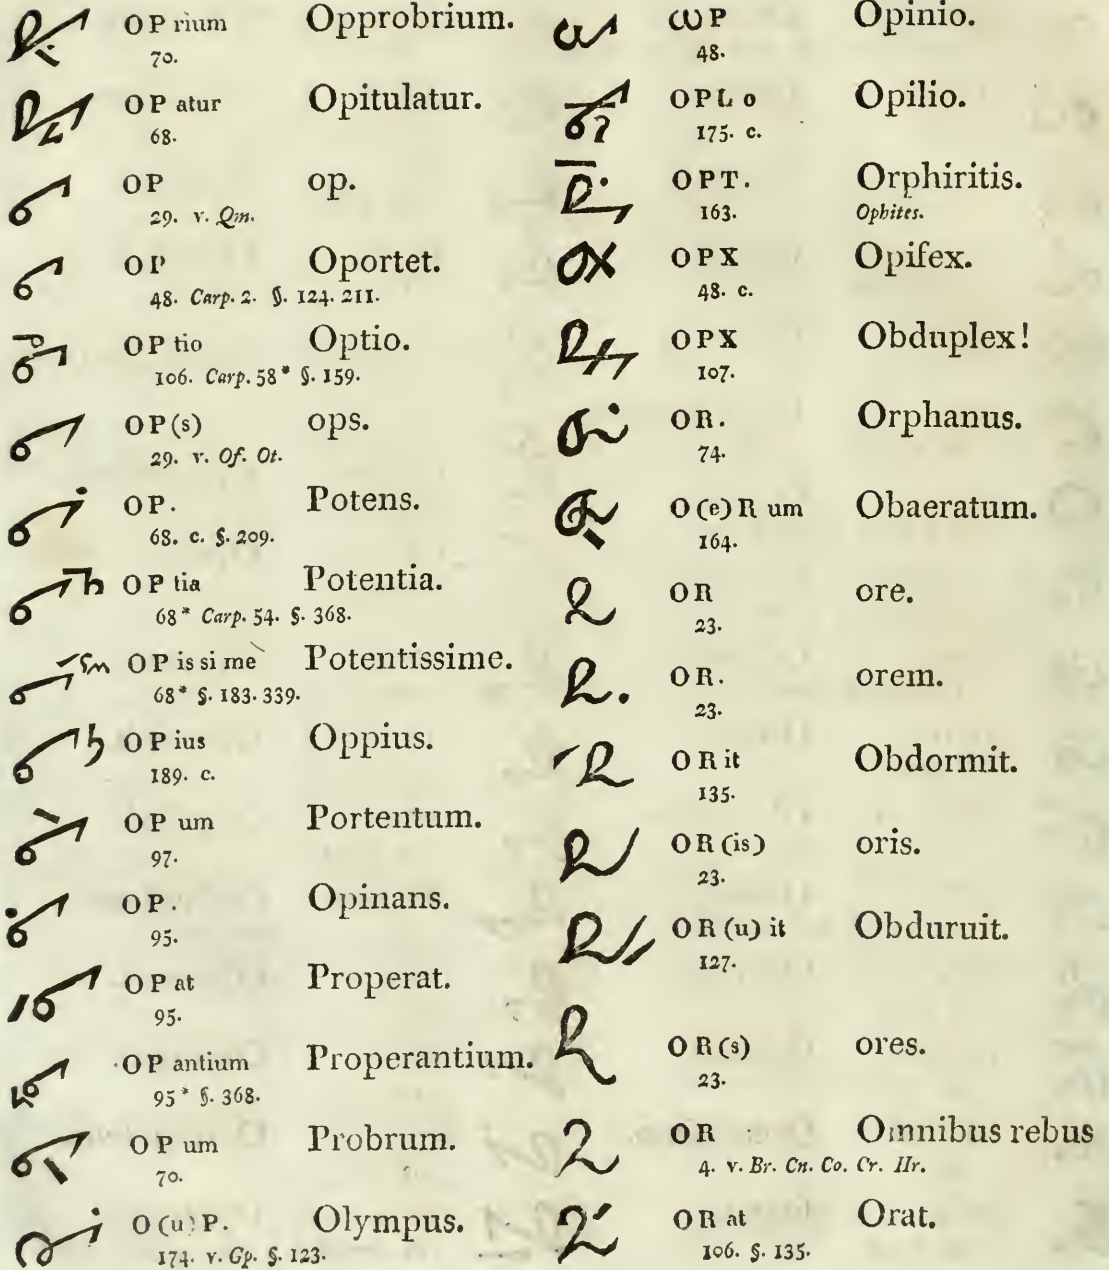 OP rium Opprobrium.
70.
OP atur Opitulatur.
68.
OP op.
29. v. Qm.
OP Oportet.
48. Carp. 2. §. 124. 211.
OP tio Optio.
106. Carp. 58* §. 159.
OP(s) ops.
29. v. Of. Ot.
OP. Potens.
68. c. §. 209.
OP tia Potentia.
68* Carp. 54. §. 368.
OP is si me Potentissime.
68* §. 183. 339.
OP ius Oppius.
189. c.
OP um Portentum.
97.
OP. Opinans.
95.
OP at Properat.
95.
OP antium Properantium.
95* §. 368.
OP um Probrum.
70.
O(u)P. Olympus.
174. v. Gp. §. 123.
ωP Opinio.
48.
OPL o Opilio.
175. c.
OPT. Orphiritis.
163. Ophites.
OPX Opifex.
48. c.
OPX Obduplex!
107.
OR. Orphanus.
74.
O(e)R um Obaeratum.
164.
OR ore.
23.
OR. orem.
23.
OR it Obdormit.
135.
OR(is) oris.
23.
OR(u) it Obduruit.
127.
OR(s) ores.
23.
OR Omnibus rebus
4. v. Br. Cn. Co. Cr. Hr.
OR at Orat.
106. §. 135.